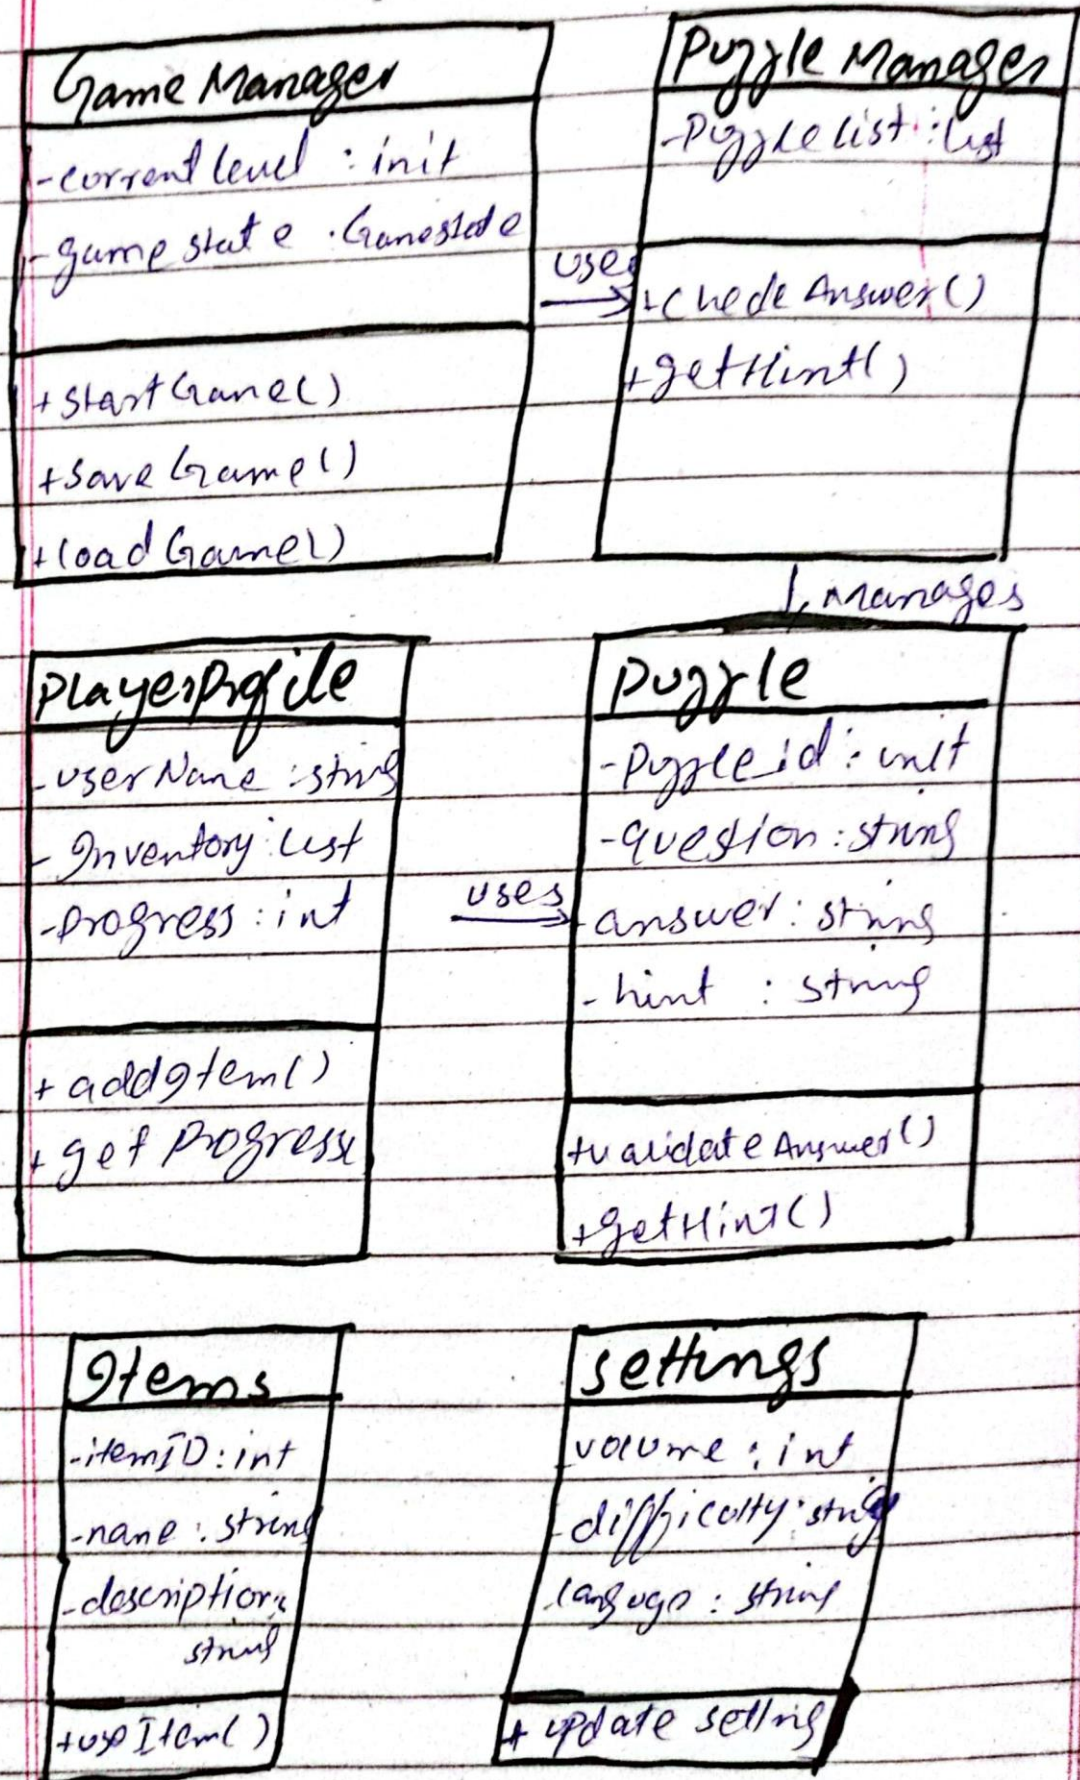 Game Manager
-current level : init
-game state : Gamestate
+StartGame()
+Save Game()
+load Game()
uses
Puzzle Manager
-Puzzle list : list
+Check Answer()
+getHint()
Manages
PlayerProfile
-userName : string
-Inventory : List
-Progress : int
+ addItem()
+ get Progress
uses
Puzzle
-Puzzle_id : init
-question : string
-answer : string
-hint : string
+validate Answer()
+getHint()
Items
-itemID : int
-name : string
-description :
string
+useItem()
settings
volume : int
-difficulty : string
-language : string
+ update setting